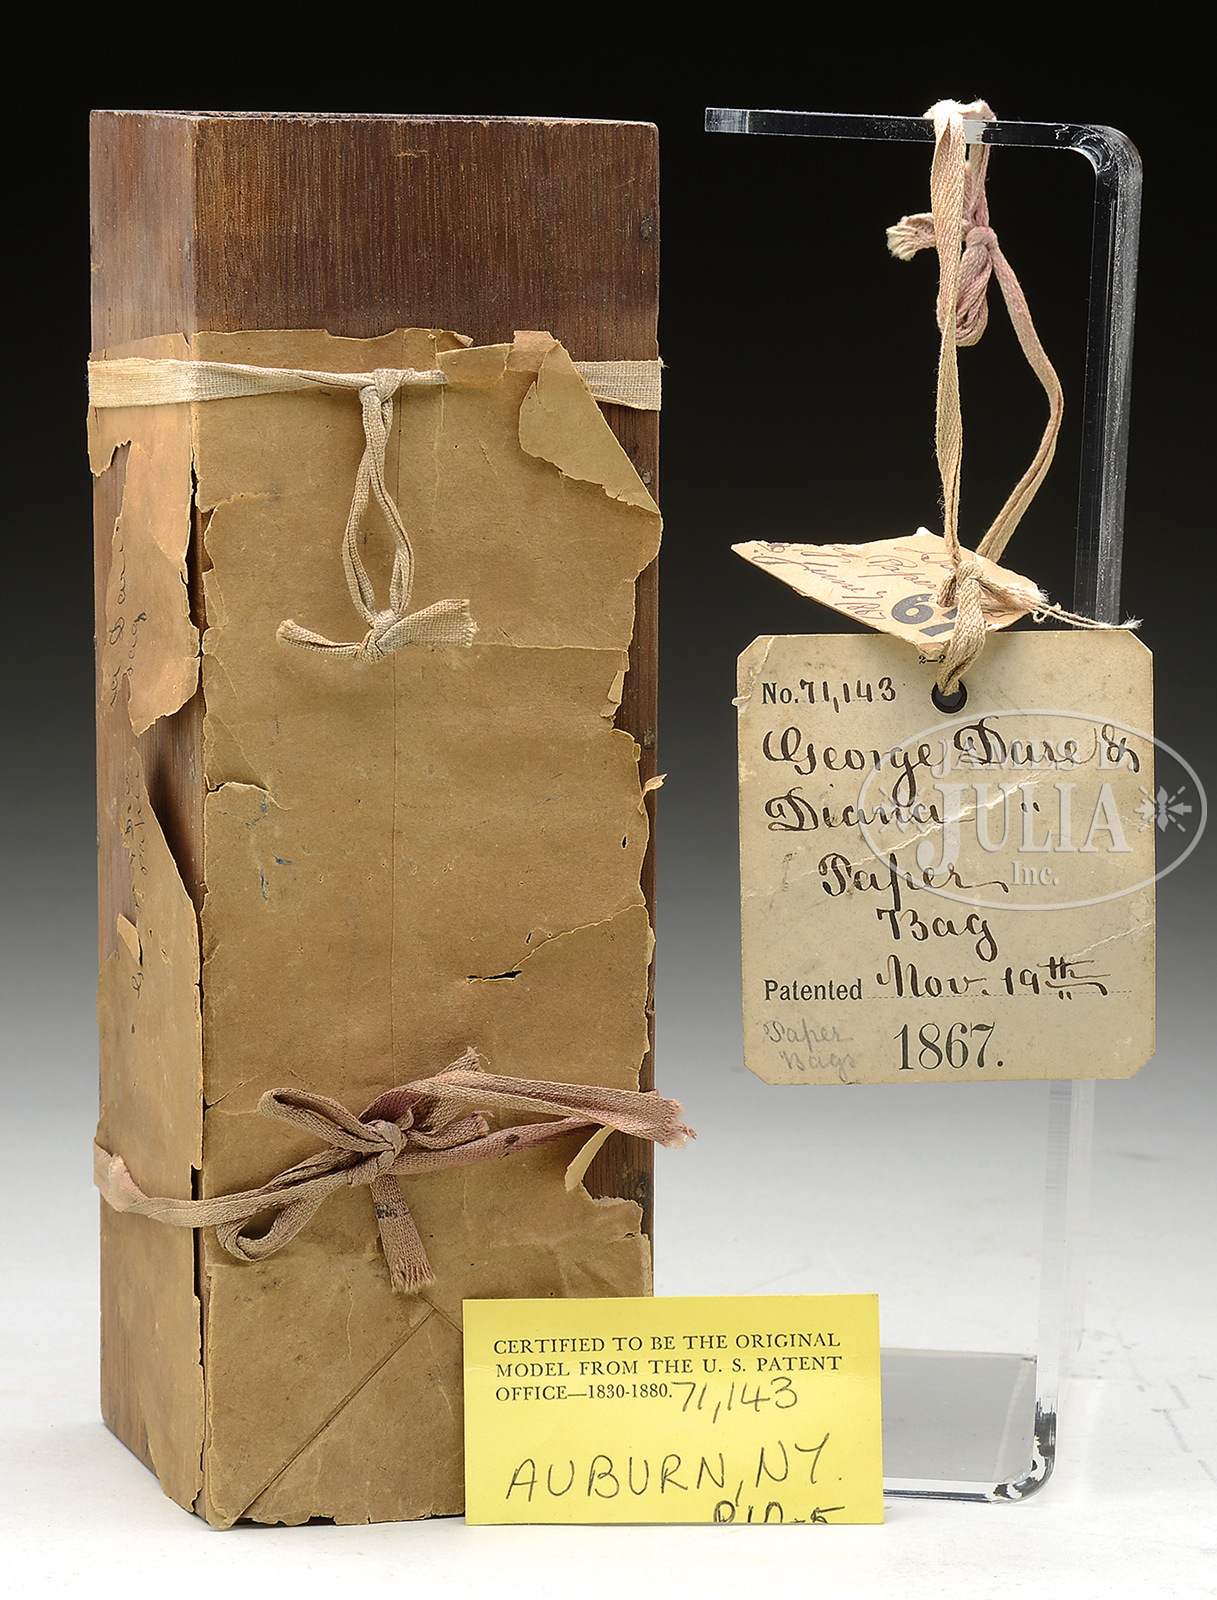 67
2-2
No. 71,143
George Dare &
Diana "
Paper
Bag
Patented Nov. 19th
1867.
Paper
Bags
JAMES D.
JULIA
Inc.
CERTIFIED TO BE THE ORIGINAL
MODEL FROM THE U. S. PATENT
OFFICE—1830-1880. 71,143
AUBURN, NY.